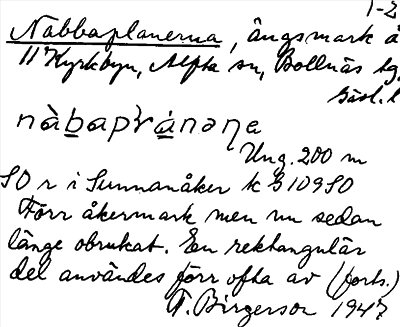 1-2
Nabbaplanerna, ängsmark å
11 Kyrkbyn, Alfta sn, Bollnäs tg,
Gäsl. l
nàbapránəɳa
Ung. 200 m
SO r i Sunnanåker k B 109 SO
Förr åkermark men nu sedan
länge obrukat. En rektangulär
del användes förr ofta av (forts.)
T. Birgerson 1947